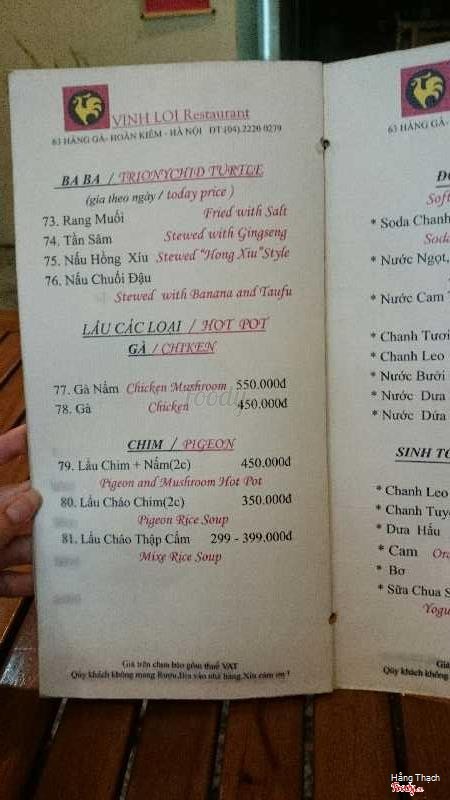 VINH LOI Restaurant
63 HÀNG GÀ- HOÀN KIẾM - HÀ NỘI ĐT:(04).2220 0279
BA BA / TRIONYCHID TURTLE
(gía theo ngày / today price )
73. Rang Muối Fried with Salt
74. Tần Sâm Stewed with Gingseng
75. Nấu Hồng Xíu Stewed "Hong Xiu" Style
76. Nấu Chuối Đậu
Stewed with Banana and Taufu
LẨU CÁC LOẠI / HOT POT
GÀ / CHIKEN
77. Gà Nấm Chicken Mushroom 550.000đ
78. Gà Chicken 450.000đ
CHIM / PIGEON
79. Lẩu Chim + Nấm(2c) 450.000đ
Pigeon and Mushroom Hot Pot
80. Lẩu Cháo Chim(2c) 350.000đ
Pigeon Rice Soup
81. Lẩu Cháo Thập Cẩm 299 - 399.000đ
Mixe Rice Soup
Giá trên chưa bào gồm thuế VAT
Qúy khách không mang Rượu,Bia vào nhà hàng.Xin cám ơn !
63 HÀNG GÀ-
Soft
* Soda Chanh
Soda
* Nước Ngọt,
* Nước Cam
* Chanh Tươi
* Chanh Leo
* Nước Bưởi
* Nước Dưa
* Nước Dứa
SINH TỐ
* Chanh Leo
* Chanh Tuyế
* Dưa Hấu
* Cam Ora
* Bơ
* Sữa Chua S
Yogu
Giá
Qúy khách không
Hằng Thạch
Foody.vn